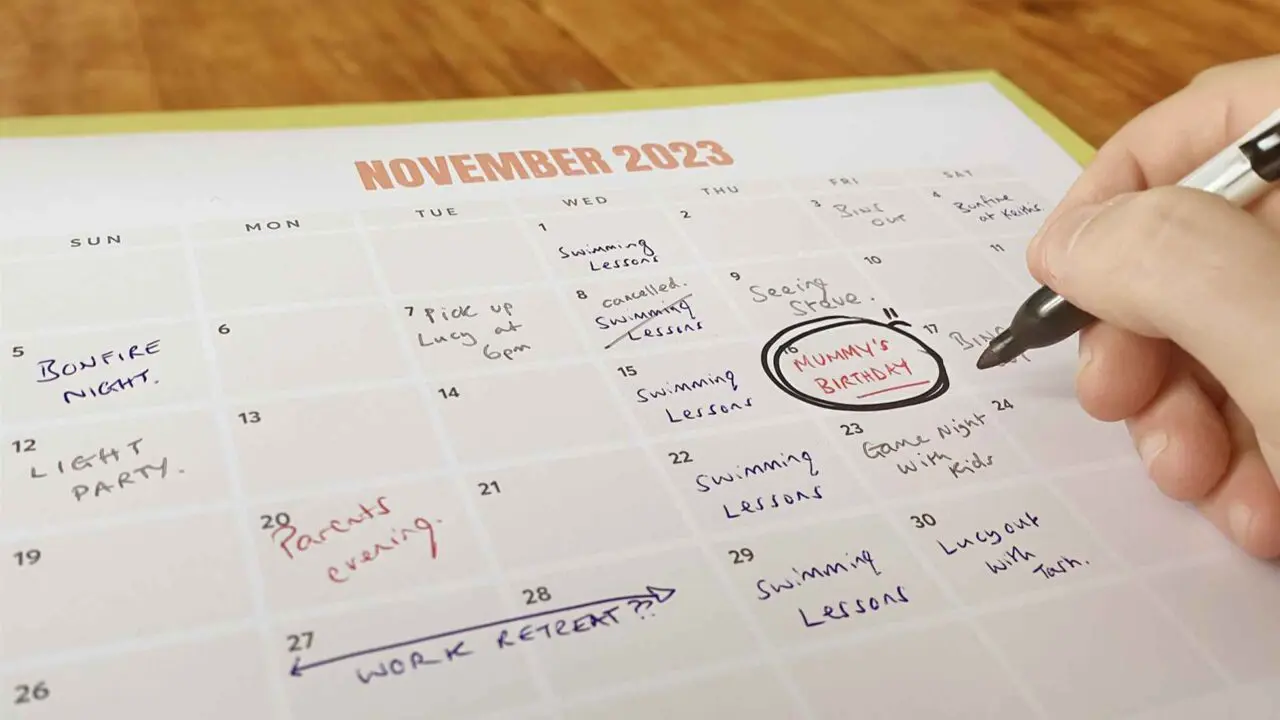 NOVEMBER 2023
SUN MON TUE WED THU FRI SAT
1
Swimming
Lessons
2
3
BINS
OUT
4
Bonfire
at Keith's
5
BONFIRE
NIGHT.
6
7
Pick up
Lucy at
6pm
8
cancelled.
Swimming
Lessons
9
Seeing
Steve.
10
11
12
LIGHT
PARTY.
13
14
15
Swimming
Lessons
16
MUMMY'S
BIRTHDAY
17
19
20
Parents
evening.
21
22
Swimming
Lessons
23
Game Night
with
Kids
24
26
27
28
WORK RETREAT??
29
Swimming
Lessons
30
Lucy out
with
Tash.